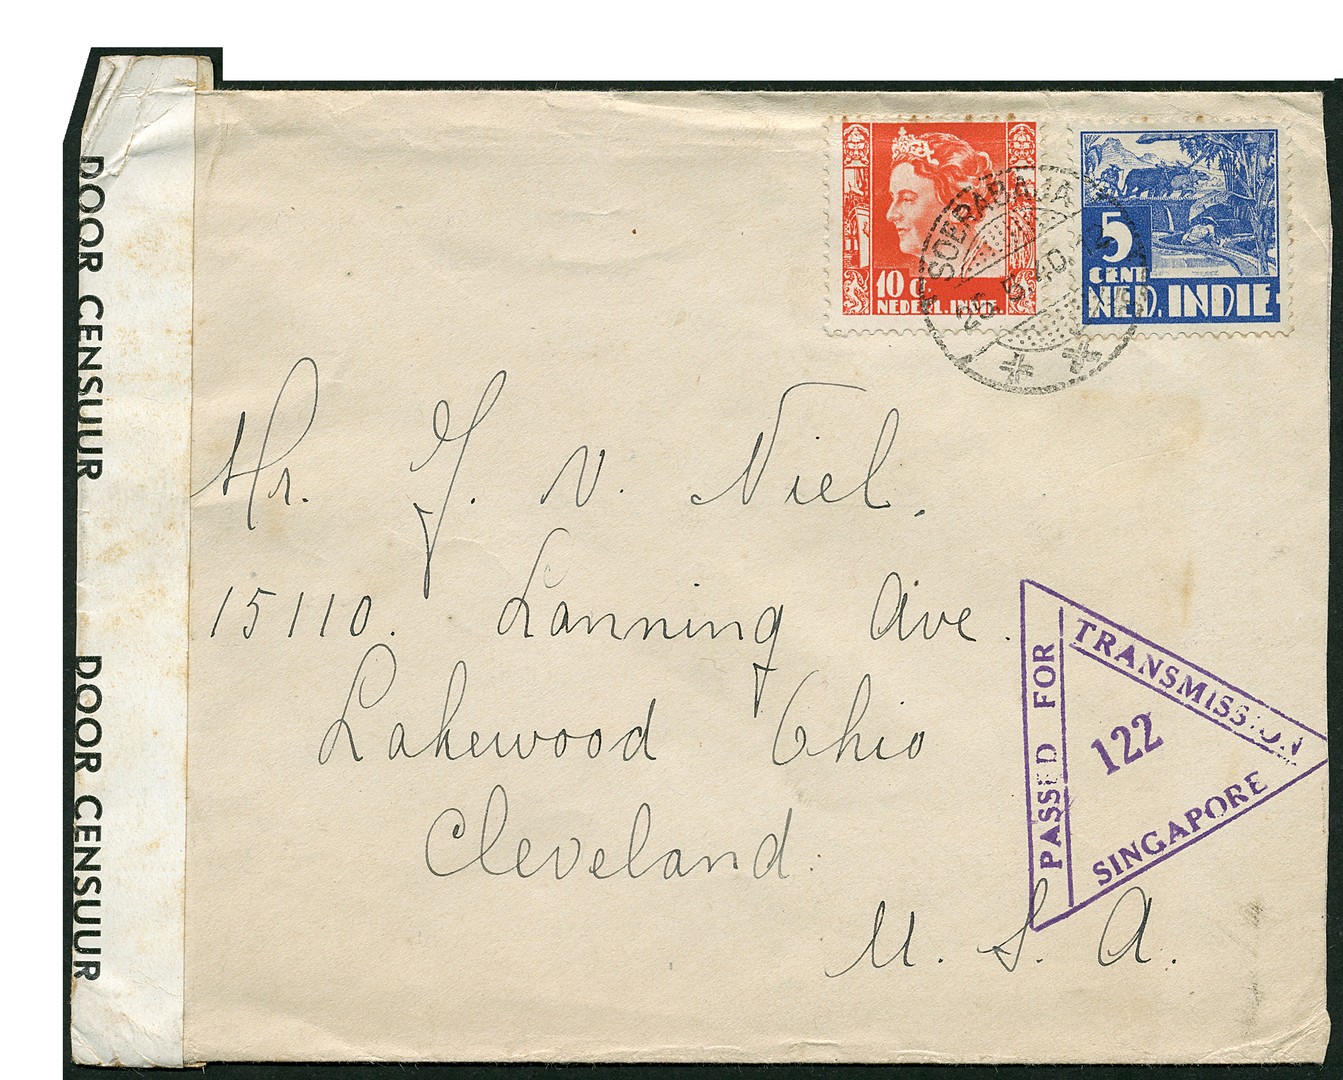 DOOR CENSUUR
DOOR CENSUUR
10 Ct.
NEDERL. INDIE
5
CENT
NED. INDIE
SOERABAJA
26.5.40.12
Mr. J. V. Niel.
15110. Lanning Ave.
Lakewood Ohio
Cleveland.
U. S. A.
PASSED FOR
TRANSMISSION
122
SINGAPORE